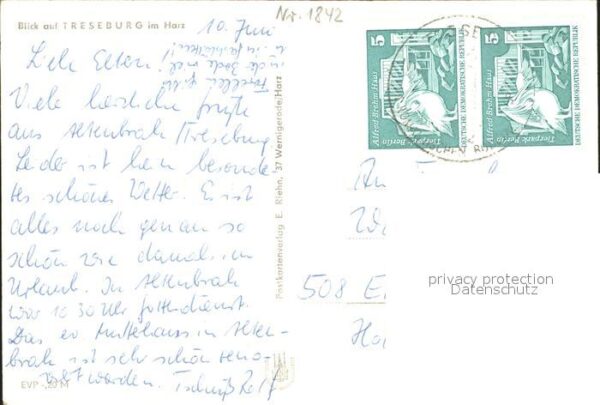 Blick auf TRESEBURG im Harz
10. Juni
Nr. 1842
Liebe Eltern!
Forellen gibt
in der Bode viel
Viele herzliche Grüße
aus Altenbrak/Treseburg
Leider ist kein besonde
res schönes Wetter. Es ist
alles noch genau so
schön wie damals im
Urlaub. In Altenbrak
war 10 30 Uhr Gottesdienst.
Das ev Mütterhaus in Alten-
brak ist sehr schön reno-
viert worden. Tschüß Ralf
EVP -,20 M
Postkartenverlag E. Riehn, 37 Wernigerode/Harz
5
Alfred-Brehm-Haus
Tierpark Berlin
DEUTSCHE DEMOKRATISCHE REPUBLIK
5
Alfred-Brehm-Haus
Tierpark Berlin
DEUTSCHE DEMOKRATISCHE REPUBLIK
An
508 E
privacy protection
Datenschutz